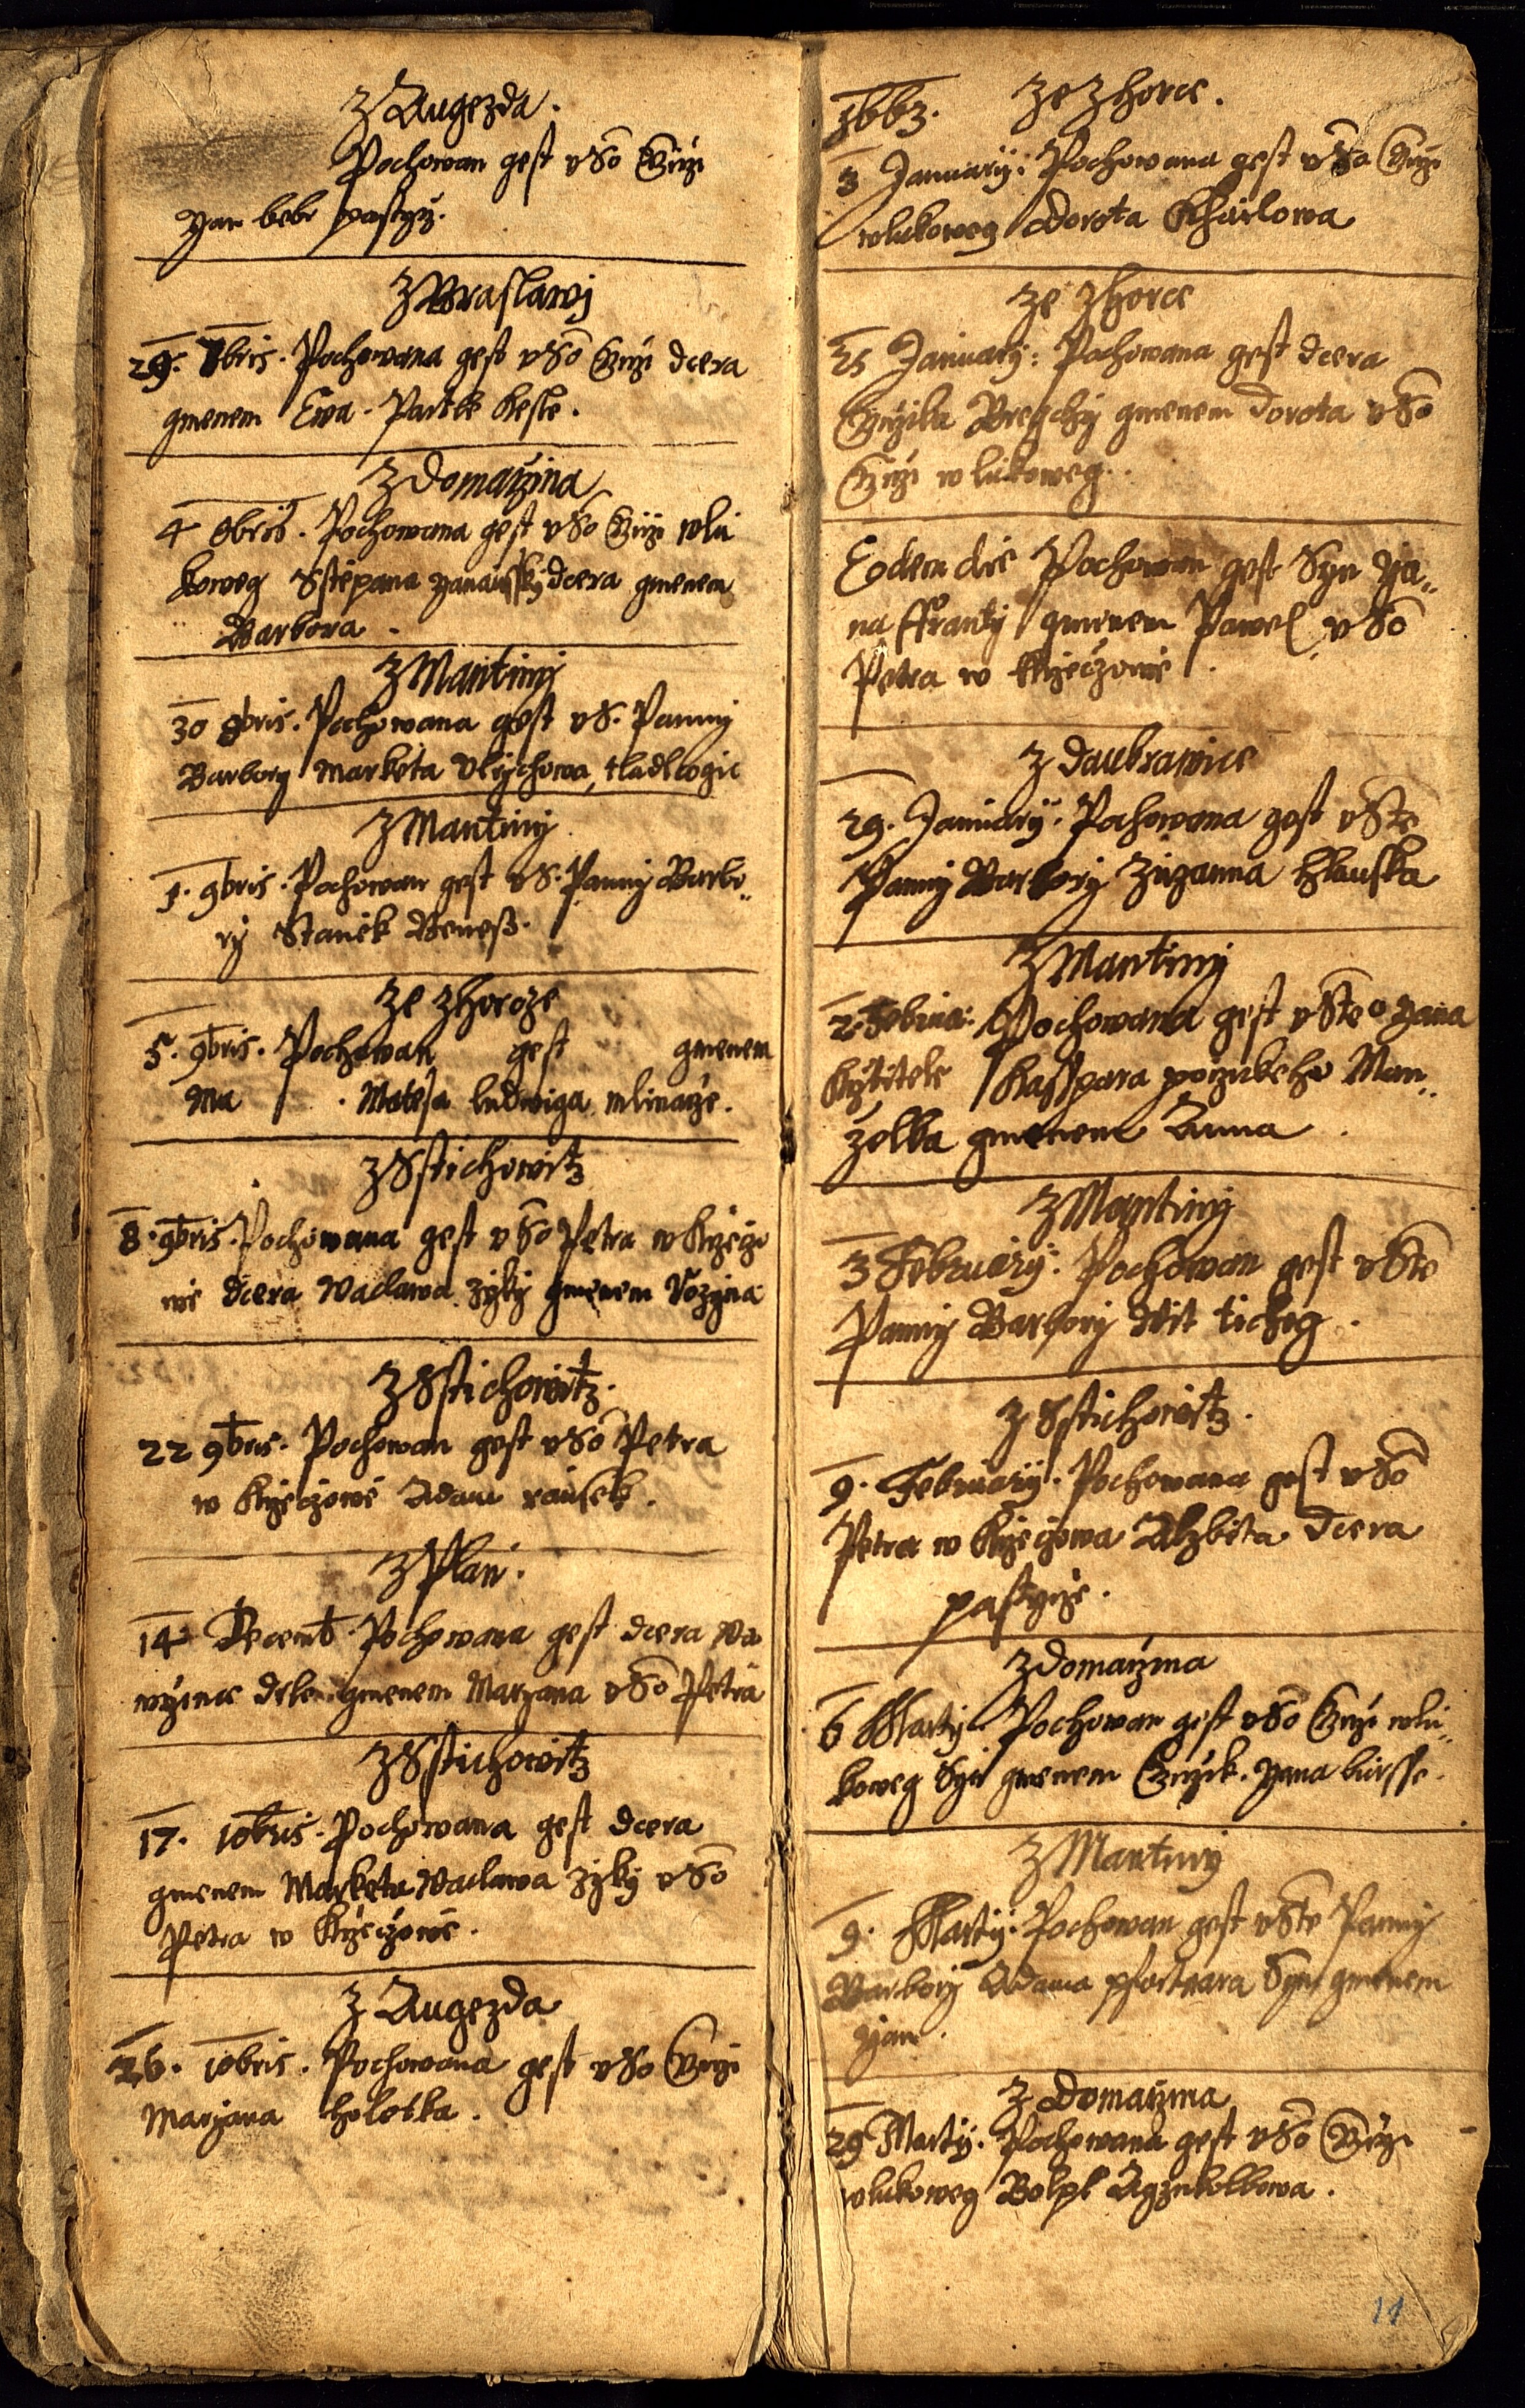 Z Augezda.
Pochowan gest v So Girzi
yan bebr pastyrz.
Z Wraslawi
29. 7bris. Pochowana gest v So Girzi dcera
gmenem Ewa. Partle
Z Domazina
4 8bris. Pochowana gest v So Girzi wlu
koweg Sstepana dcera gmenem
Barbora.
Z Mantiny
30 8bris. Pochowana gest v S. Panny
Barbory Marketa Vlrychowa
Z Mantiny
1. 9bris. Pochowan gest v S. Panny Barbo„
ry Stanek Beness.
Ze zhorze
5. 9bris. Pochowan gest gmenem
Ma . Mateja ludwiga mlinarze.
Z Sstichowitz
8. 9bris. Pochowana gest v So Petra w Krzeczo
we dcera Waclawa zyky gmenem Rozyna
Z Sstichowitz.
22 9bris. Pochowan gest v So Petra
w Krzeczowe Adam
Z Plan.
14 Decemb. Pochowana gest dcera Wa
wrzince gmenem Maryana v So Petra
Z Sstichowitz
17. 10bris. Pochowana gest dcera
gmenem Marketa Waclawa zyky v So
Petra w Krzeczowe.
Z Augezda
26. 10bris. Pochowana gest v So Girzi
Maryana holotka.
1663. Ze Zhorce.
3 January: Pochowana gest v So Girzi
wlukoweg Dorota
Ze Zhorce
25 January: Pochowana gest dcera
Girzika gmenem Dorota v So
Girzi w lukoweg.
Eodem die Pochowan gest Syn Ja„
na ffranty gmenem Pawel v So
Petra w Krzeczowe.
Z Daubrawice
29. January. Pochowana gest v Ste
Panny Barbory Zuzanna Hlauska
Z Mantiny
2. Pochowana gest v Ste o Yana
Krztitele Kasspara Man„
zelka gmenem Anna.
Z Mantiny
3 February: Pochowan gest v Ste
Panny Barbory Wit tichey.
Z Sstichowitz.
9. February. Pochowana gest v So
Petra w Krzeczowa Alzbeta dcera
pastyrze.
Z Domazina
6 Marty. Pochowan gest v So Girzi wlu„
koweg Syn gmenem Girzik. Yana bursse.
Z Mantiny
9. Marty. Pochowan gest v Ste Panny
Barbory Adama Syn gmenem
Yan.
Z Domazina
29 Marty. Pochowana gest v So Girzi
wlukoweg
11